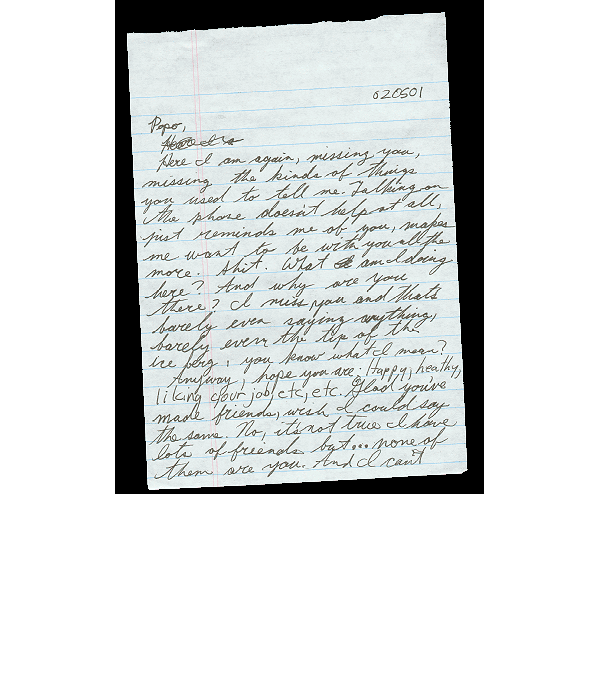 020501
Popo,
Here I am again, missing you,
missing the kinds of things
you used to tell me. Talking on
the phone doesn't help at all,
just reminds me of you, makes
me want to be with you all the
more. Shit. What am I doing
here? And why are you
there? I miss you and that's
barely even saying anything,
barely even the tip of the
ice berg, you know what I mean?
Anyway, hope you are: Happy, healthy,
liking your job etc, etc. Glad you've
made friends, wish I could say
the same. No, it's not true I have
lots of friends but... none of
them are you. And I can't